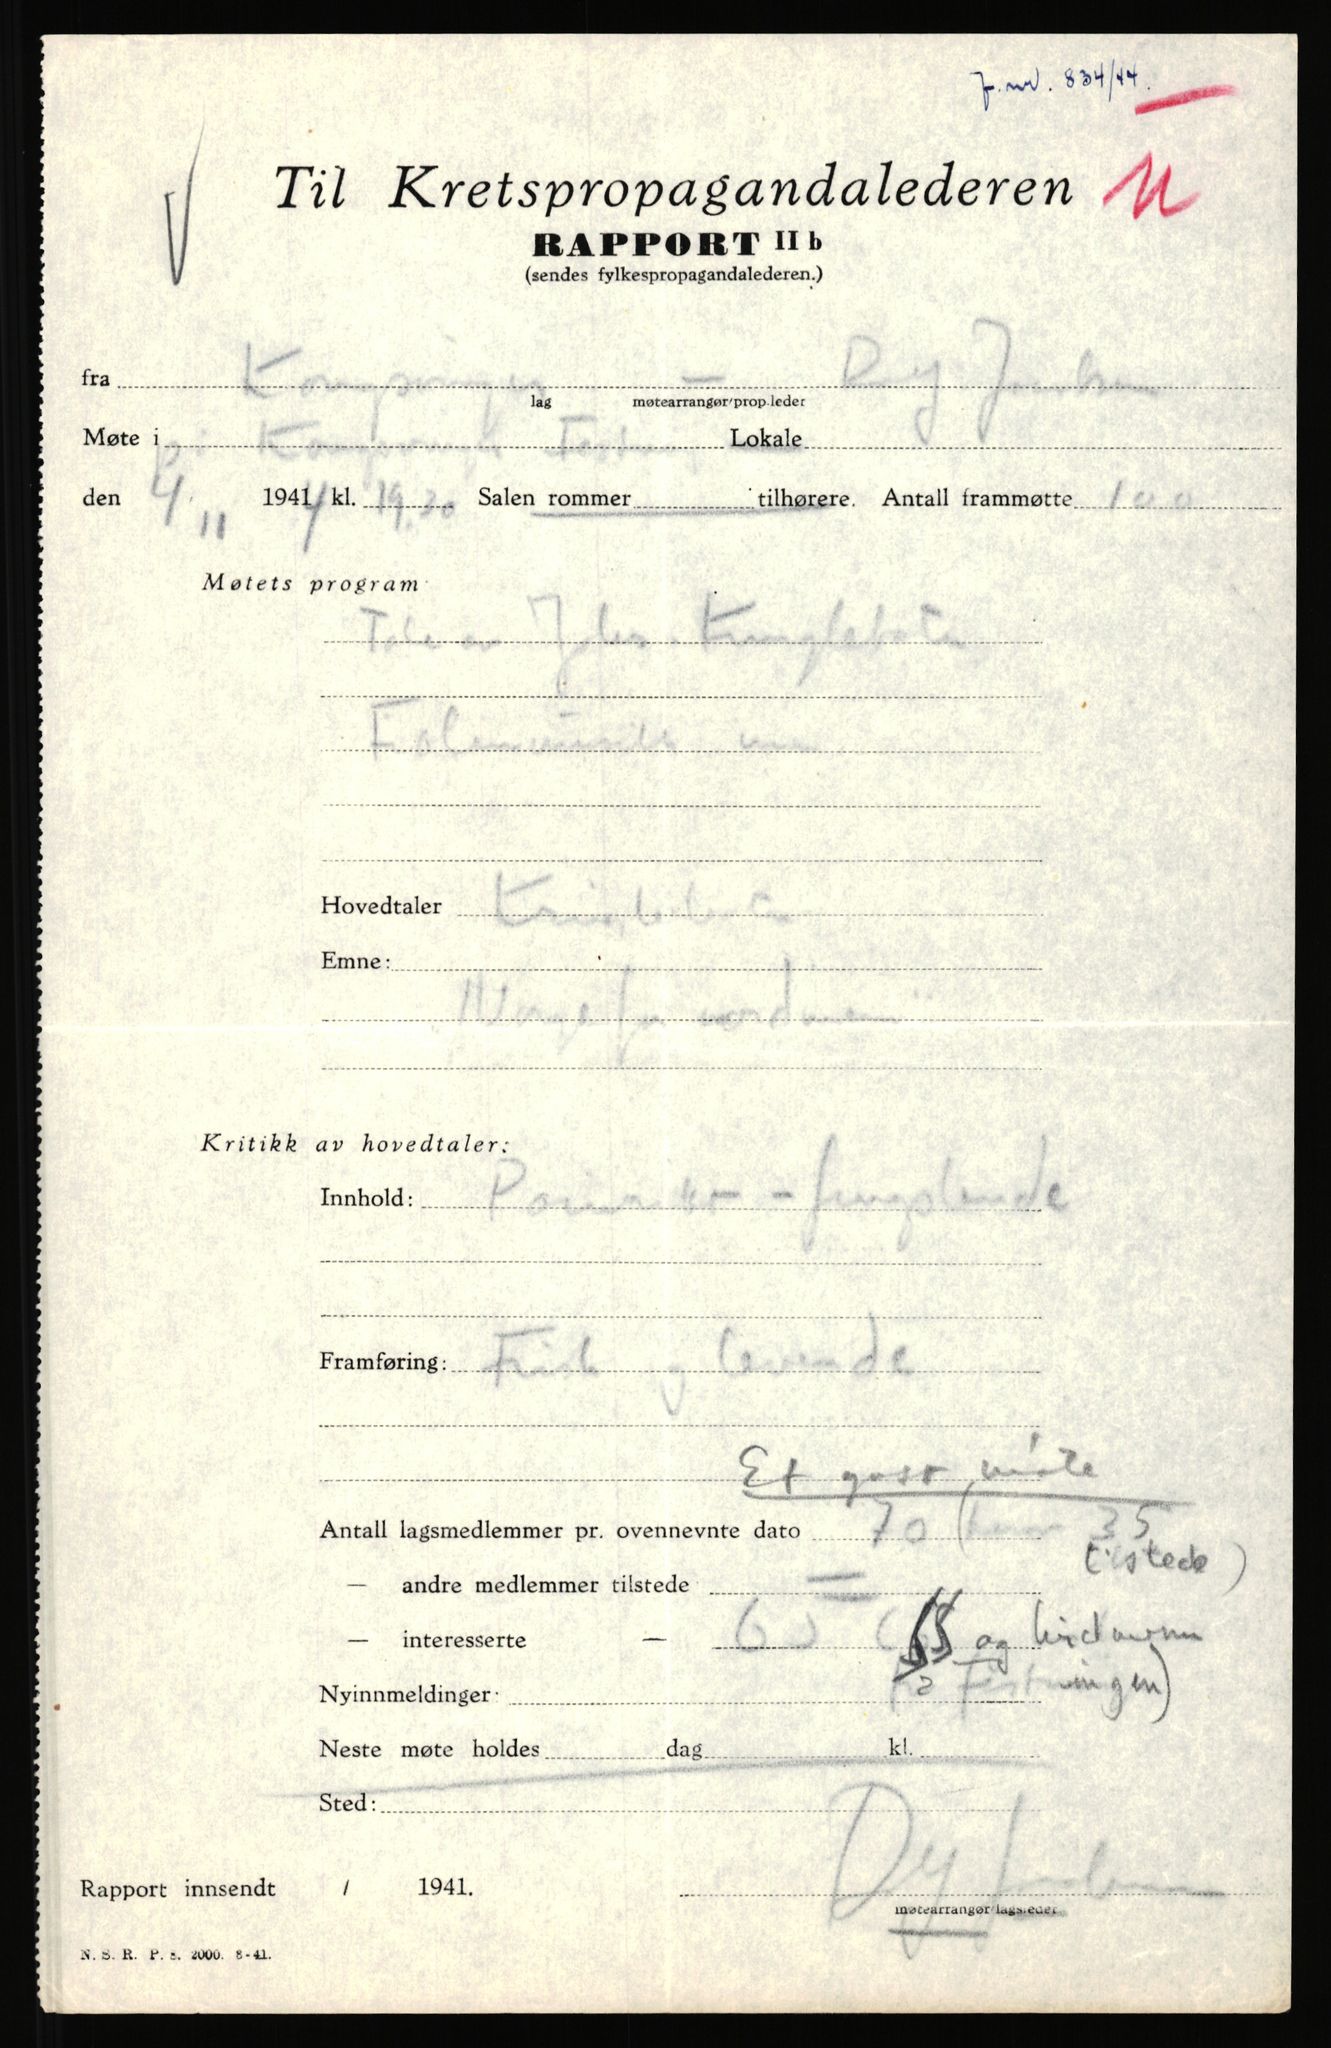 J.nr. 834/44.
Til Kretspropagandalederen
RAPPORT II b
(sendes fylkespropagandalederen.)
fra Kongsvinger —
lag møtearrangør/prop.leder
Møte i på Kongsvinger Lokale
den 4/11 1941 4 kl. 19.30 Salen rommer tilhørere. Antall frammøtte 100
Møtets program
Tale av
Hovedtaler
Emne:
Norge for nordmenn
Kritikk av hovedtaler:
Innhold: fengslende
Framføring: Frisk og levende
Et godt møte
Antall lagsmedlemmer pr. ovennevnte dato 70 (hvor 35
tilstede)
— andre medlemmer tilstede —
— interesserte — og hirdmenn
Nyinnmeldinger: på Festningen)
Neste møte holdes dag kl.
Sted:
Rapport innsendt / 1941.
møtearrangør/lagsleder
N. S. R. P. s. 2000. 8-41.